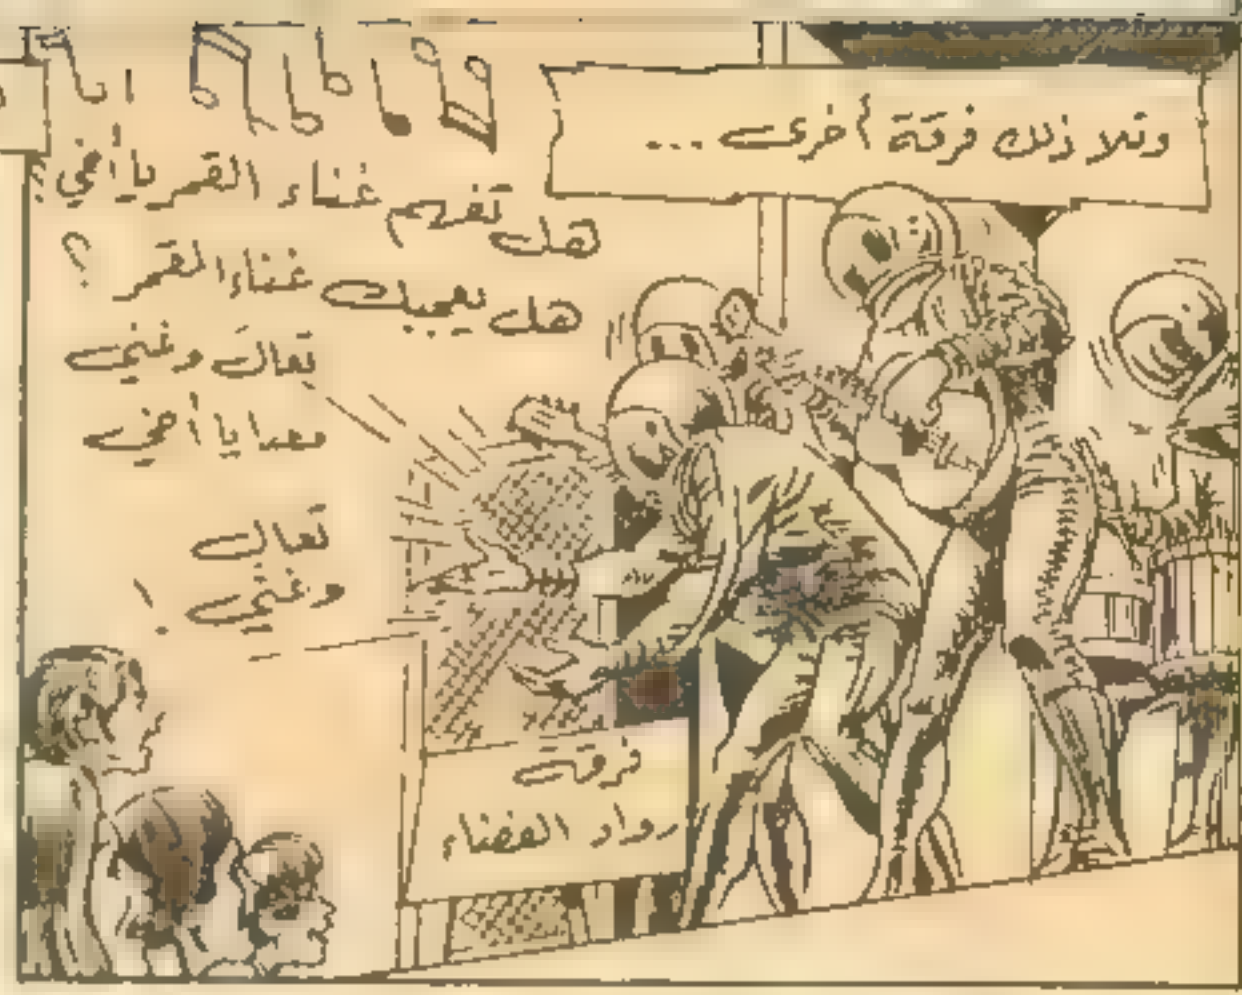 وتلا ذلك فرقة أخرى ...
هل تفهم غناء القمر يا أخي ؟
هل يعجبك غناء القمر ؟
تعال وغني
معنا يا أخي
تعال
وغني !
فرقة
رواد الفضاء